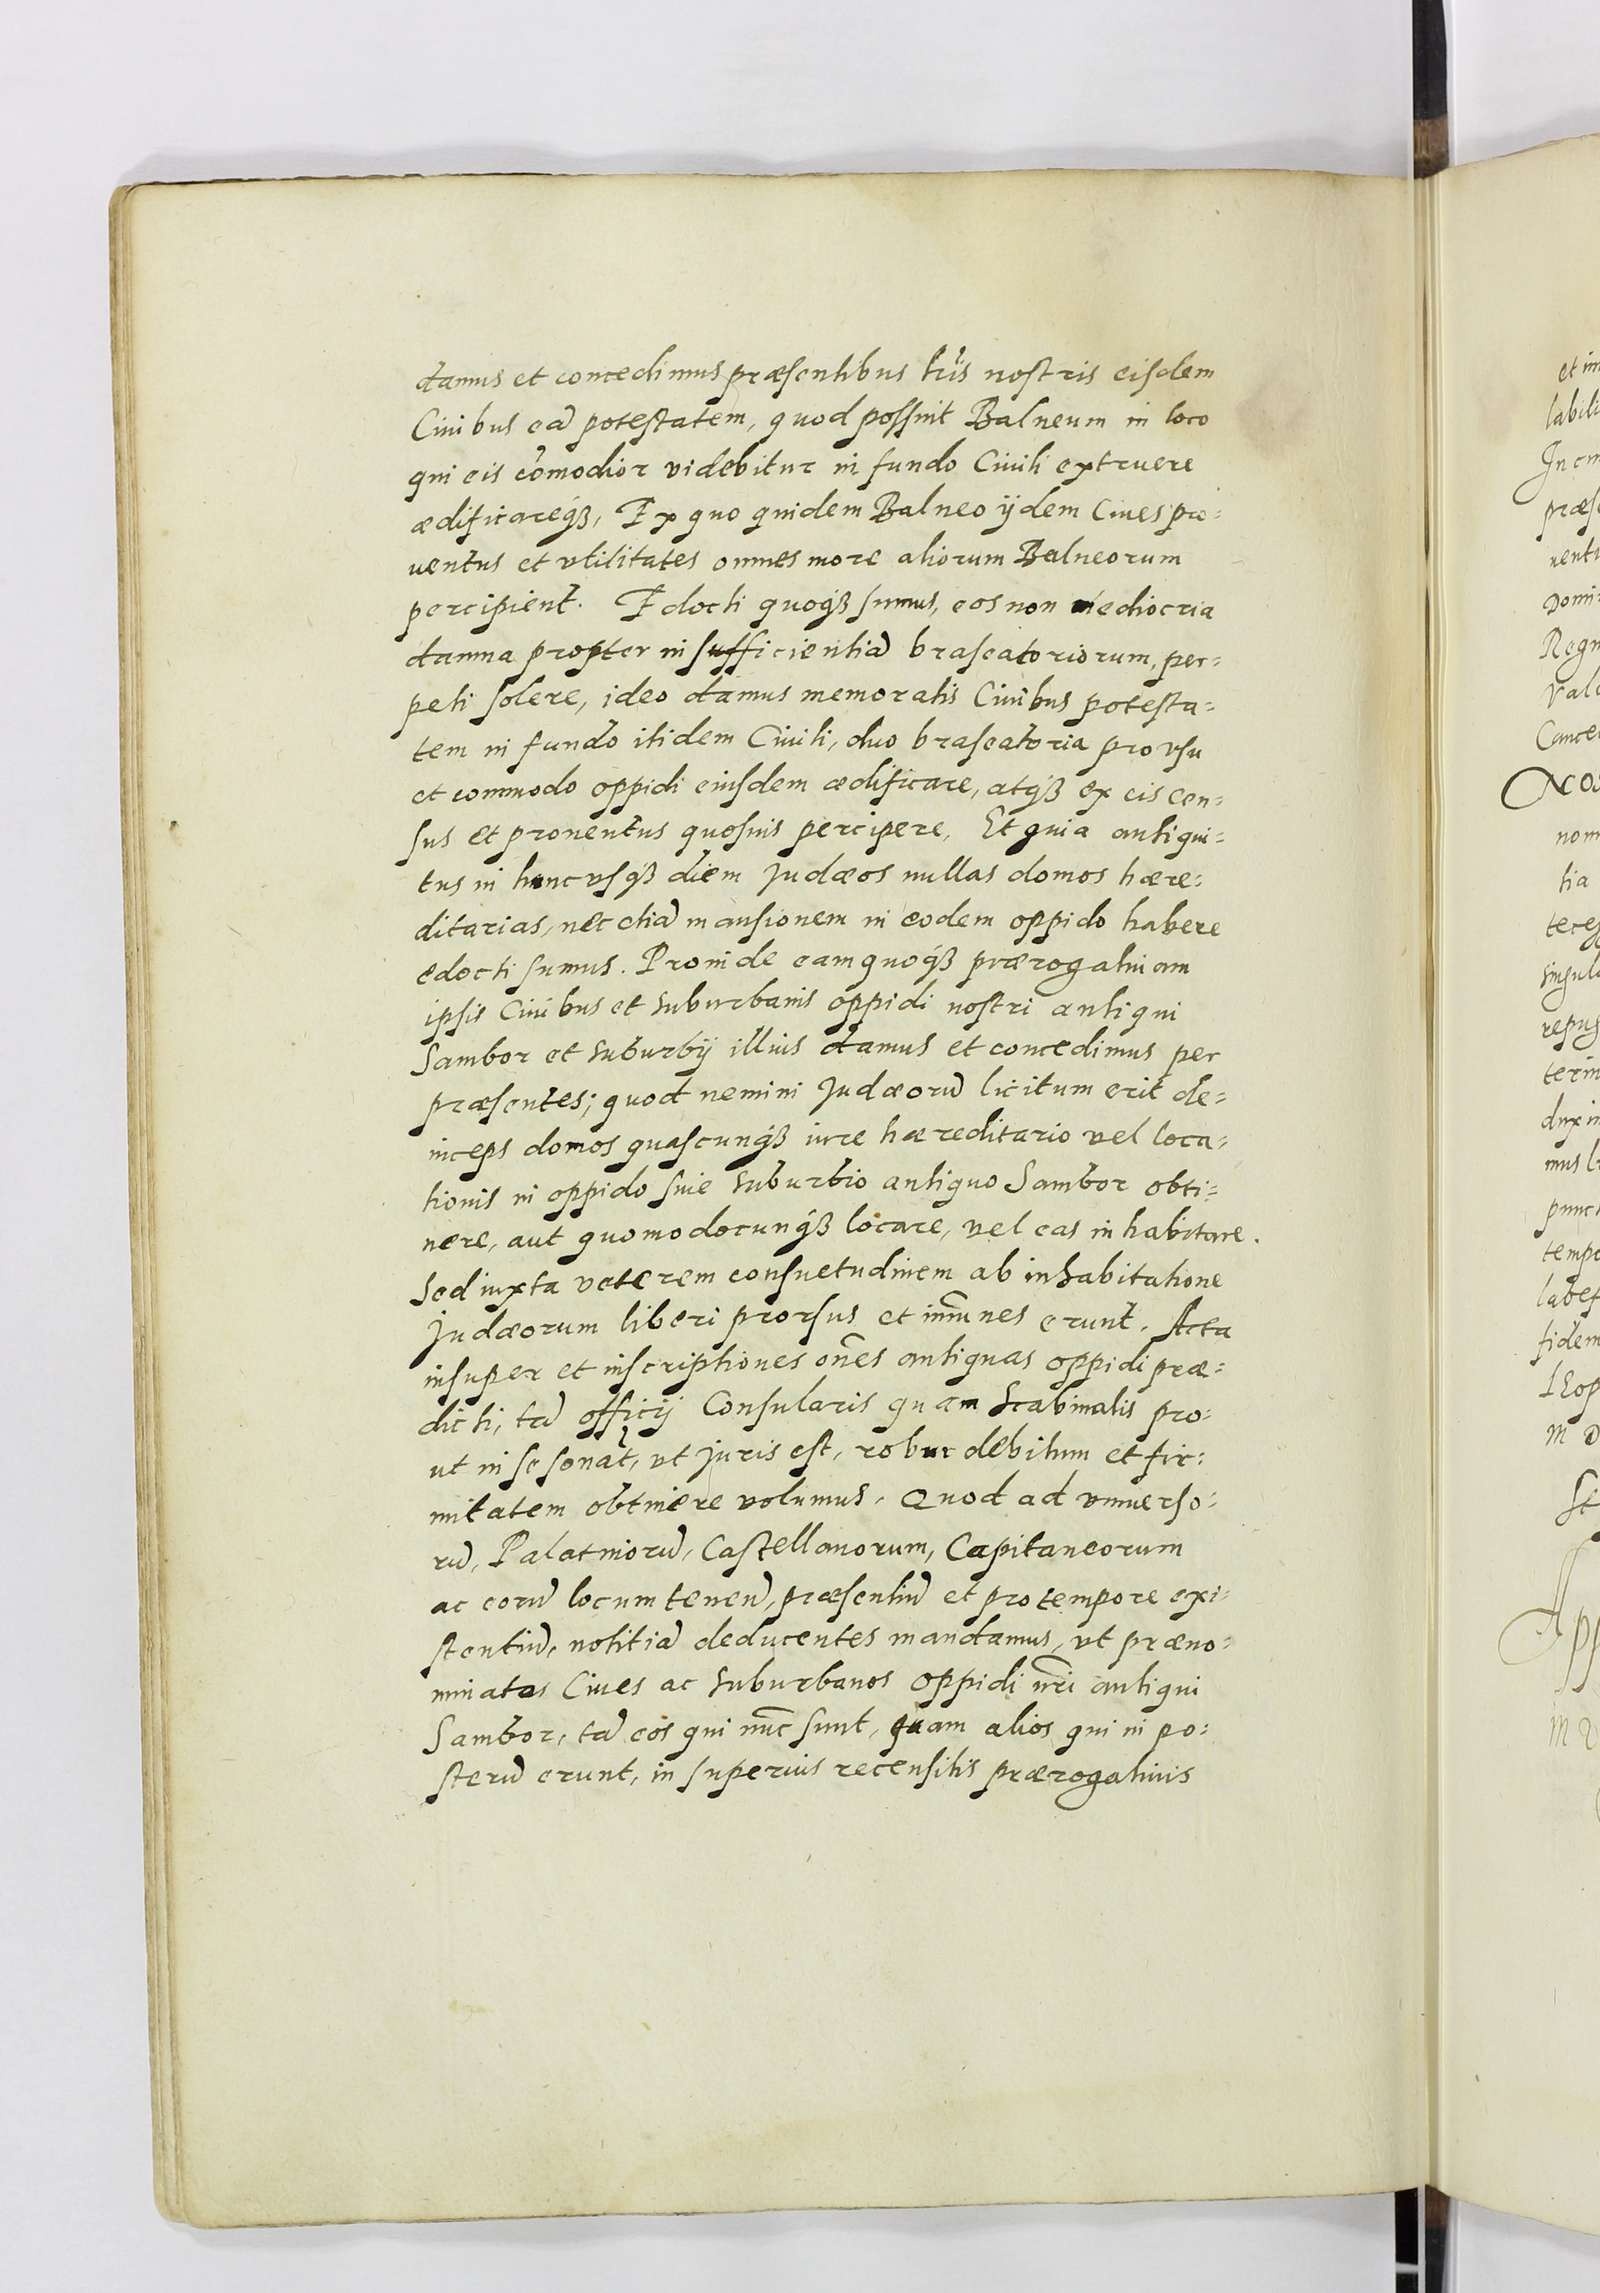 damus et concedimus præsentibus lr̃is nostris eisdem
Ciuibus eã potestatem, quod possint Balneum in loco
qui eis cõmodior videbitur in fundo Ciuili extruere
ædificareq́ꝫ, Ex quo quidem Balneo ijdem Ciues pro-
uentus et vtilitates omnes more aliorum Balneorum
percipient. Edocti quoq́ꝫ sumus, eos non mediocria
damna propter insufficientiã braseatoriorum, per-
peti solere, ideo damus memoratis Ciuibus potesta-
tem in fundo itidem Ciuili, duo braseatoria pro vsu
et commodo oppidi eiusdem ædificare, atq́ꝫ ex eis cen-
sus et prouentus quosuis percipere, Et quia antiqui-
tus in hunc vsq́ꝫ diem Judæos nullas domos hære-
ditarias, nec etiã mansionem in eodem oppido habere
edocti sumus. Proinde eam quoq́ꝫ prærogatiuam
ipsis Ciuibus et suburbanis oppidi nostri antiqui
Sambor et suburbij illius damus et concedimus per
præsentes; quod nemini Judæorũ licitum erit de-
inceps domos quascunq́ꝫ iure hæreditario vel loca-
tionis in oppido siue suburbio antiquo Sambor obti-
nere, aut quomodocunq́ꝫ locare, vel eas inhabitare.
Sed iuxta veterem consuetudinem ab inhabitatione
Judæorum liberi prorsus et im̃unes erunt. Acta
insuper et inscriptiones om̃es antiquas oppidi præ-
dicti, tã officij Consularis quam Scabinalis pro-
ut in se sonãt, vt juris est, robur debitum et fir-
mitatem obtinere volumus. Quod ad vniuerso-
rũ, Palatinorũ, Castellanorum, Capitaneorum
ac eorũ locum tenenũ, præsentiũ et pro tempore exi-
stentiũ, notitiã deducentes mandamus, vt præno-
minatos Ciues ac suburbanos oppidi nr̃i antiqui
Sambor, tã eos qui nũc sunt, quam alios qui in po-
sterũ erunt, in superius recensitis prærogatiuis
et im
labili
præse
uentu
Domi
Regn
Cance
Nos
nom
tia
singul
repug
terin
mus l
punct
tempo
labef
fidem
M D
App